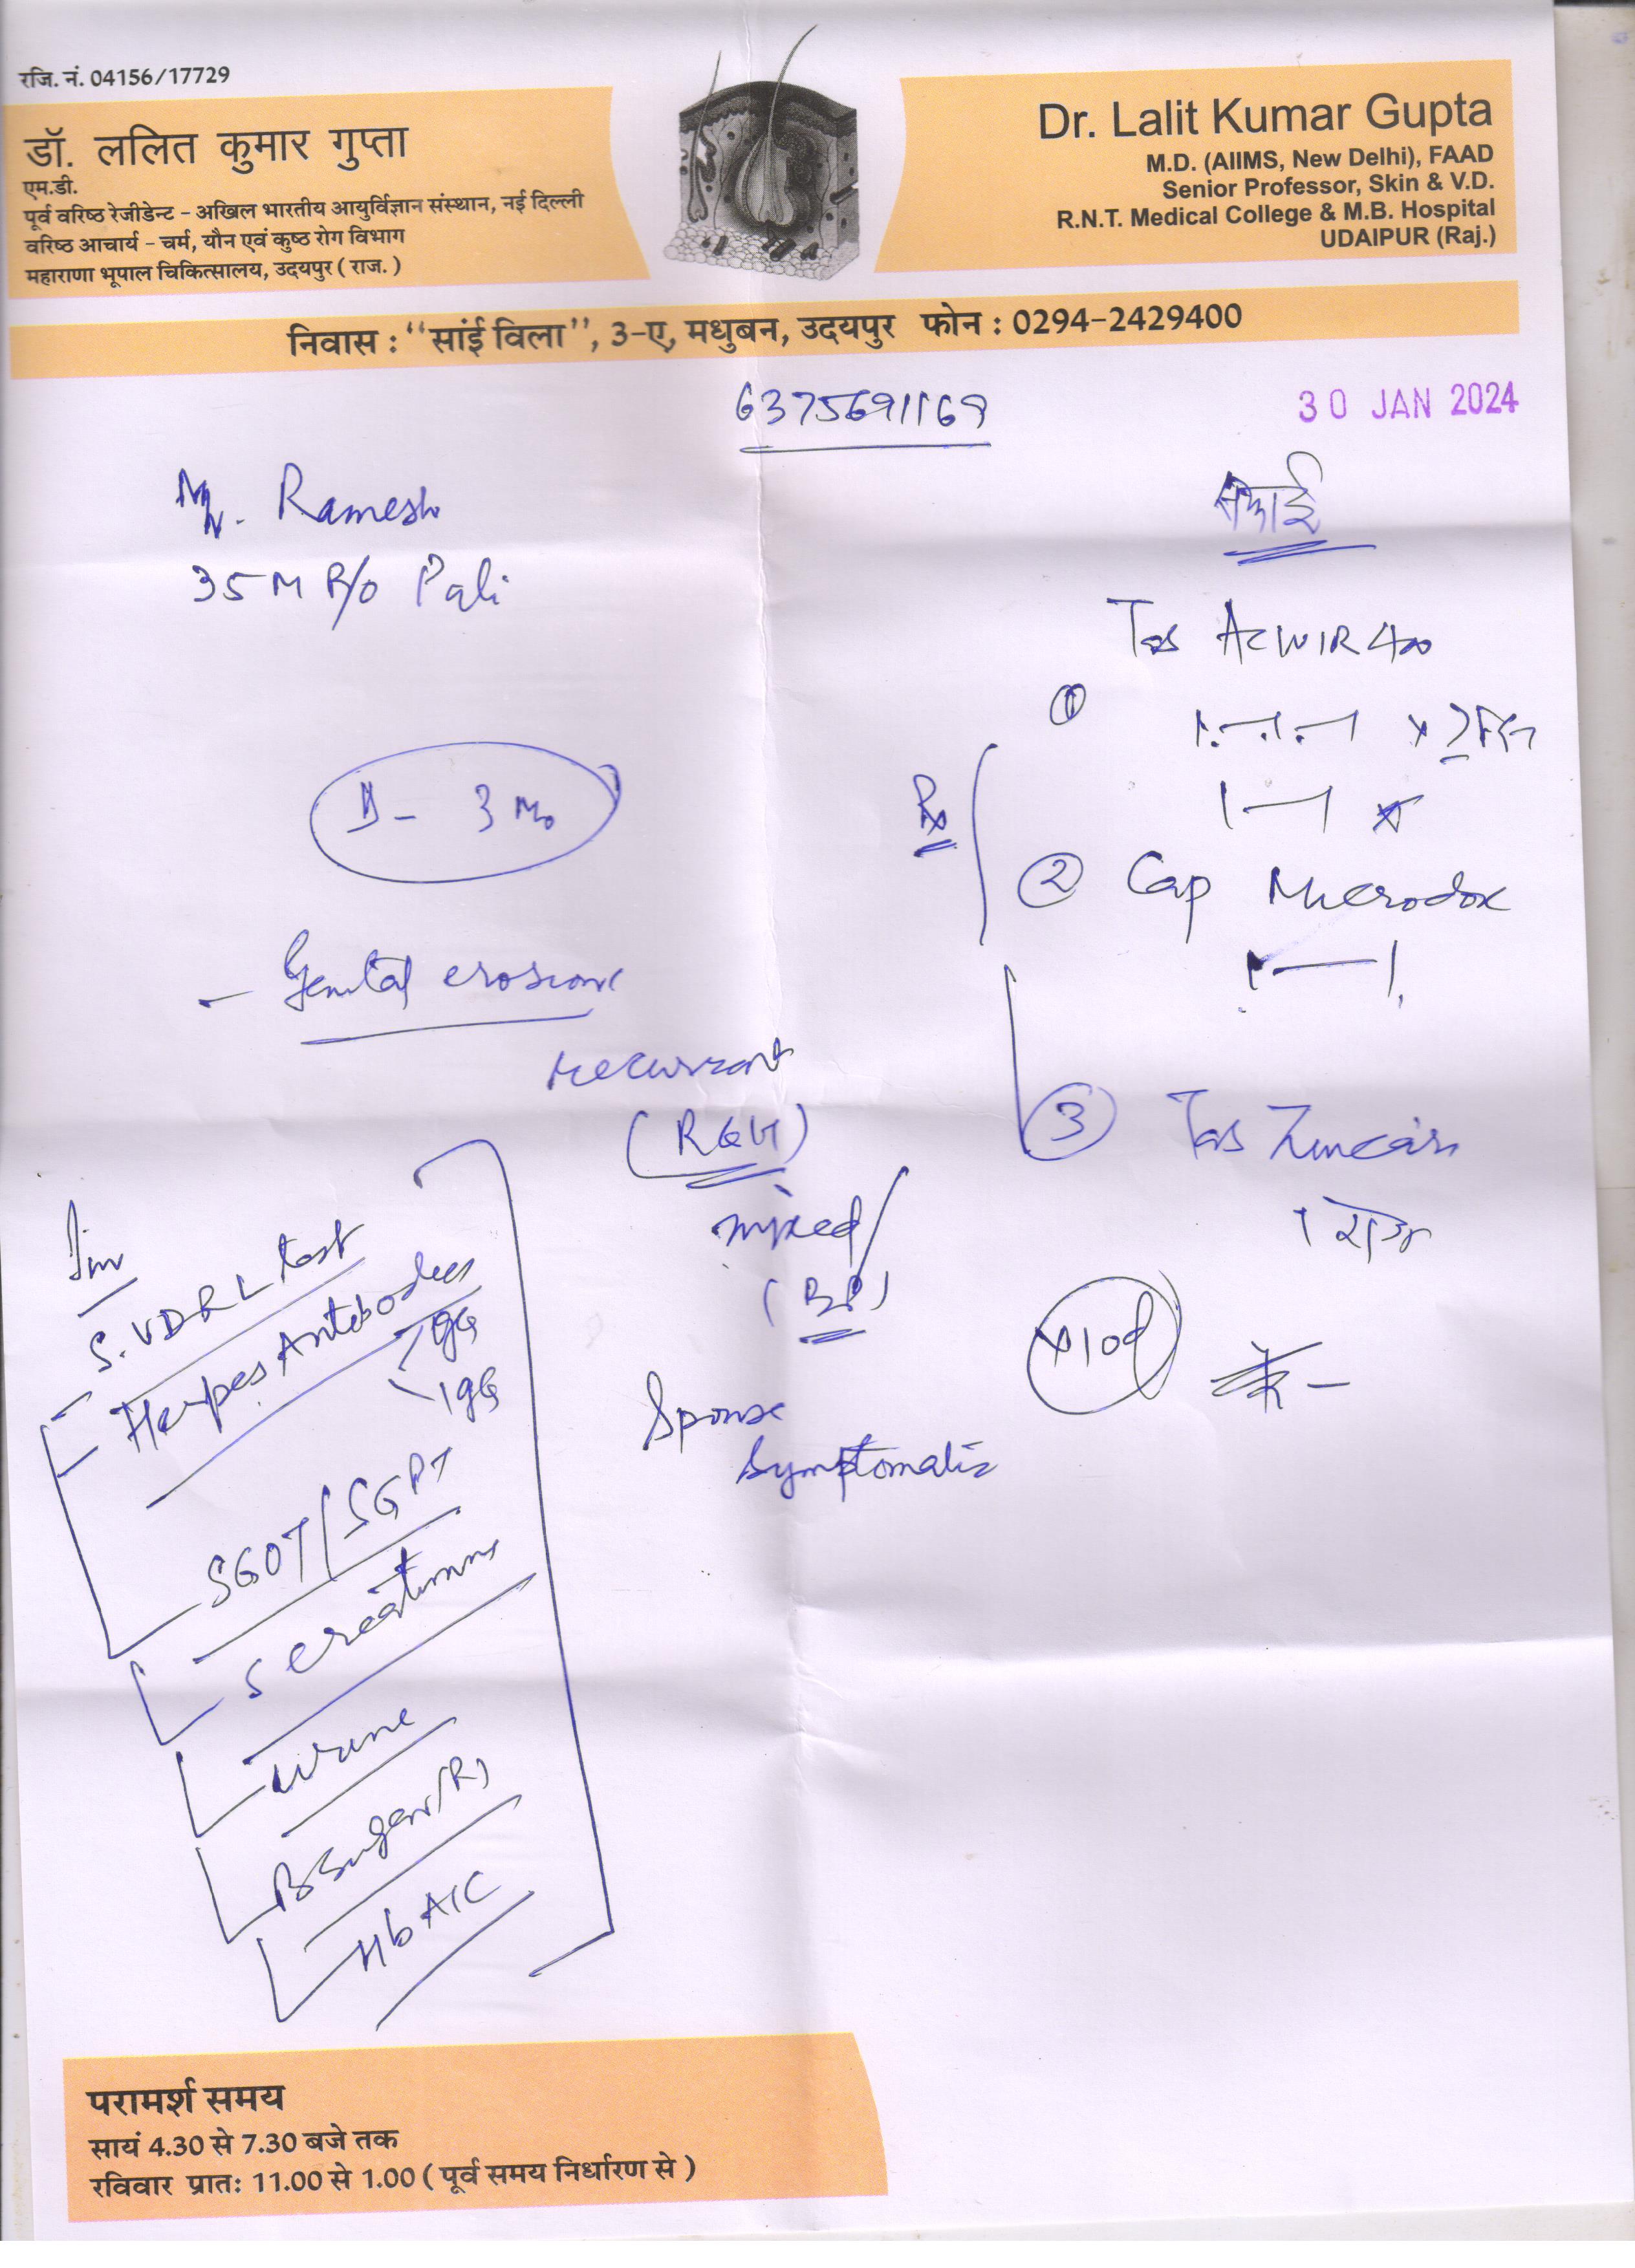 रजि. नं. 04156/17729
डॉ. ललित कुमार गुप्ता
एम.डी.
पूर्व वरिष्ठ रेजीडेन्ट - अखिल भारतीय आयुर्विज्ञान संस्थान, नई दिल्ली
वरिष्ठ आचार्य - चर्म, यौन एवं कुष्ठ रोग विभाग
महाराणा भूपाल चिकित्सालय, उदयपुर ( राज. )
Dr. Lalit Kumar Gupta
M.D. (AIIMS, New Delhi), FAAD
Senior Professor, Skin & V.D.
R.N.T. Medical College & M.B. Hospital
UDAIPUR (Raj.)
निवास : "सांई विला", 3-ए, मधुबन, उदयपुर फोन : 0294-2429400
6375691169
30 JAN 2024
Mr. Ramesh
35 M R/o Pali
D - 3 Mo
- Genital erosions
recurrent
(RGH)
mixed
Spouse
Symptomatic
Inv
S. VDRL test
Herpes Antibodies
IgG
SGOT/SGPT
S creatinine
urine
B Sugar (R)
HbA1C
सफाई
Rx
①
Tab ACIVIR 400
② Cap Microdox
1—1
③ Tab Zincain
1 रोज
x 10d
परामर्श समय
सायं 4.30 से 7.30 बजे तक
रविवार प्रातः 11.00 से 1.00 ( पूर्व समय निर्धारण से )